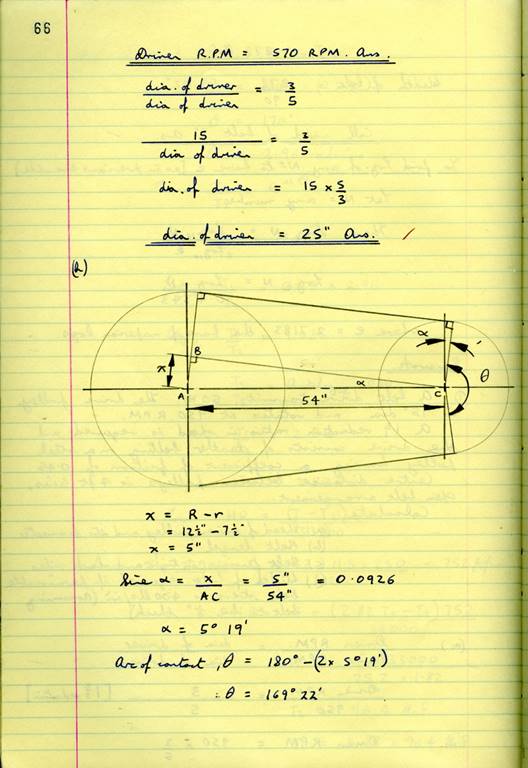 66
Driven R.P.M = 570 RPM. Ans.
dia. of driver / dia of driven = 3/5
15 / dia of driven = 3/5
dia. of driven = 15 × 5/3
dia. of driven = 25" Ans.
(b)
α
B
x
α
θ
A
C
54"
x = R - r
= 12½" - 7½"
x = 5"
Sine α = x/AC = 5"/54" = 0.0926
α = 5° 19'
Arc of contact, θ = 180° - (2 x 5° 19')
∴ θ = 169° 22'